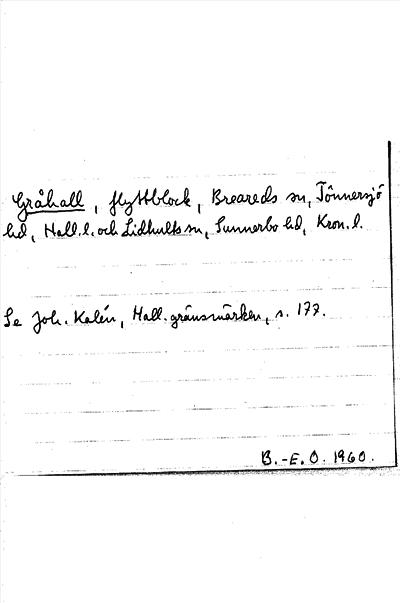 Gråhall, flyttblock, Breareds sn, Tönnersjö
hd, Hall. l. och Lidhults sn, Sunnerbo hd, Kron. l.
Se Joh. Kalén, Hall. gränsmärken, s. 177.
B.-E. O. 1960.